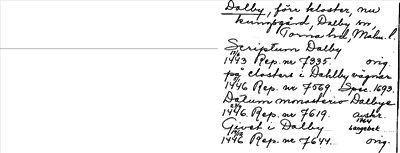 Dalby, förr kloster, nu
kungsgård, Dalby sn,
Torna hd, Malm. l.
Scriptum Dalby
1443 Rep. nr 7335. orig.
på closters i Dahlby vägnar
1446 Rep. nr 7569. Spec. 1693.
Datum monasterio Dalbye
1446. Rep. nr 7619. avskr.
Givet i Dalby
1446 Rep. nr 7644. orig.